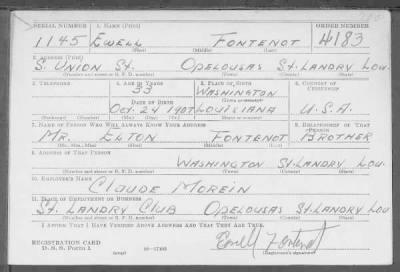 SERIAL NUMBER 1. NAME (Print) ORDER NUMBER
1145 EWELL FONTENOT 4183
(First) (Middle) (Last)
2. ADDRESS (Print)
S. UNION ST. OPELOUSAS ST. LANDRY LOU.
(Number and street or R. F. D. number) (Town) (County) (State)
3. TELEPHONE 4. AGE IN YEARS 5. PLACE OF BIRTH 6. COUNTRY OF CITIZENSHIP
33 WASHINGTON
DATE OF BIRTH (Town or county)
OCT. 24 1907 LOUISIANA U.S.A.
(Exchange) (Number) (Mo.) (Day) (Yr.) (State or country)
7. NAME OF PERSON WHO WILL ALWAYS KNOW YOUR ADDRESS 8. RELATIONSHIP OF THAT PERSON
MR. ELTON FONTENOT BROTHER
(Mr., Mrs., Miss) (First) (Middle) (Last)
9. ADDRESS OF THAT PERSON
WASHINGTON ST. LANDRY LOU.
(Number and street or R. F. D. number) (Town) (County) (State)
10. EMPLOYER'S NAME
CLAUDE MOREIN
11. PLACE OF EMPLOYMENT OR BUSINESS
ST. LANDRY CLUB OPELOUSAS ST. LANDRY LOU
(Number and street or R. F. D. number) (Town) (County) (State)
I AFFIRM THAT I HAVE VERIFIED ABOVE ANSWERS AND THAT THEY ARE TRUE.
REGISTRATION CARD
D. S. S. FORM 1 (over) 16—17105 Ewell Fontenot
(Registrant's signature)